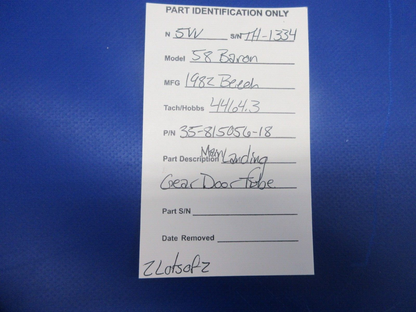 PART IDENTIFICATION ONLY
N 5W S/N TH-1334
Model 58 Baron
MFG 1982 Beech
Tach/Hobbs 4464.3
P/N 35-815056-18
Part Description Main Landing
Gear Door Tube
Part S/N
Date Removed
2 Lots of 2